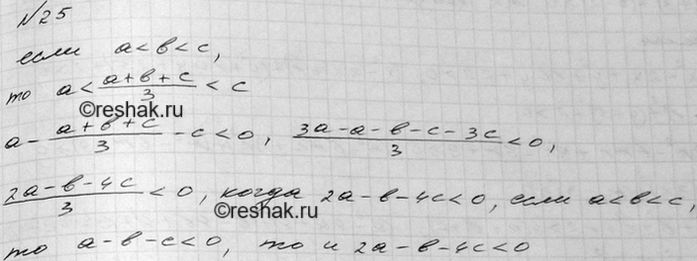 №25
если a<в<c,
то a<(a+в+c)/3<c
©reshak.ru
a-(a+в+c)/3-c<0, (3a-a-в-c-3c)/3<0,
(2a-в-4c)/3<0, когда 2a-в-4c<0, если a<в<c,
©reshak.ru
то a-в-c<0, то и 2a-в-4c<0